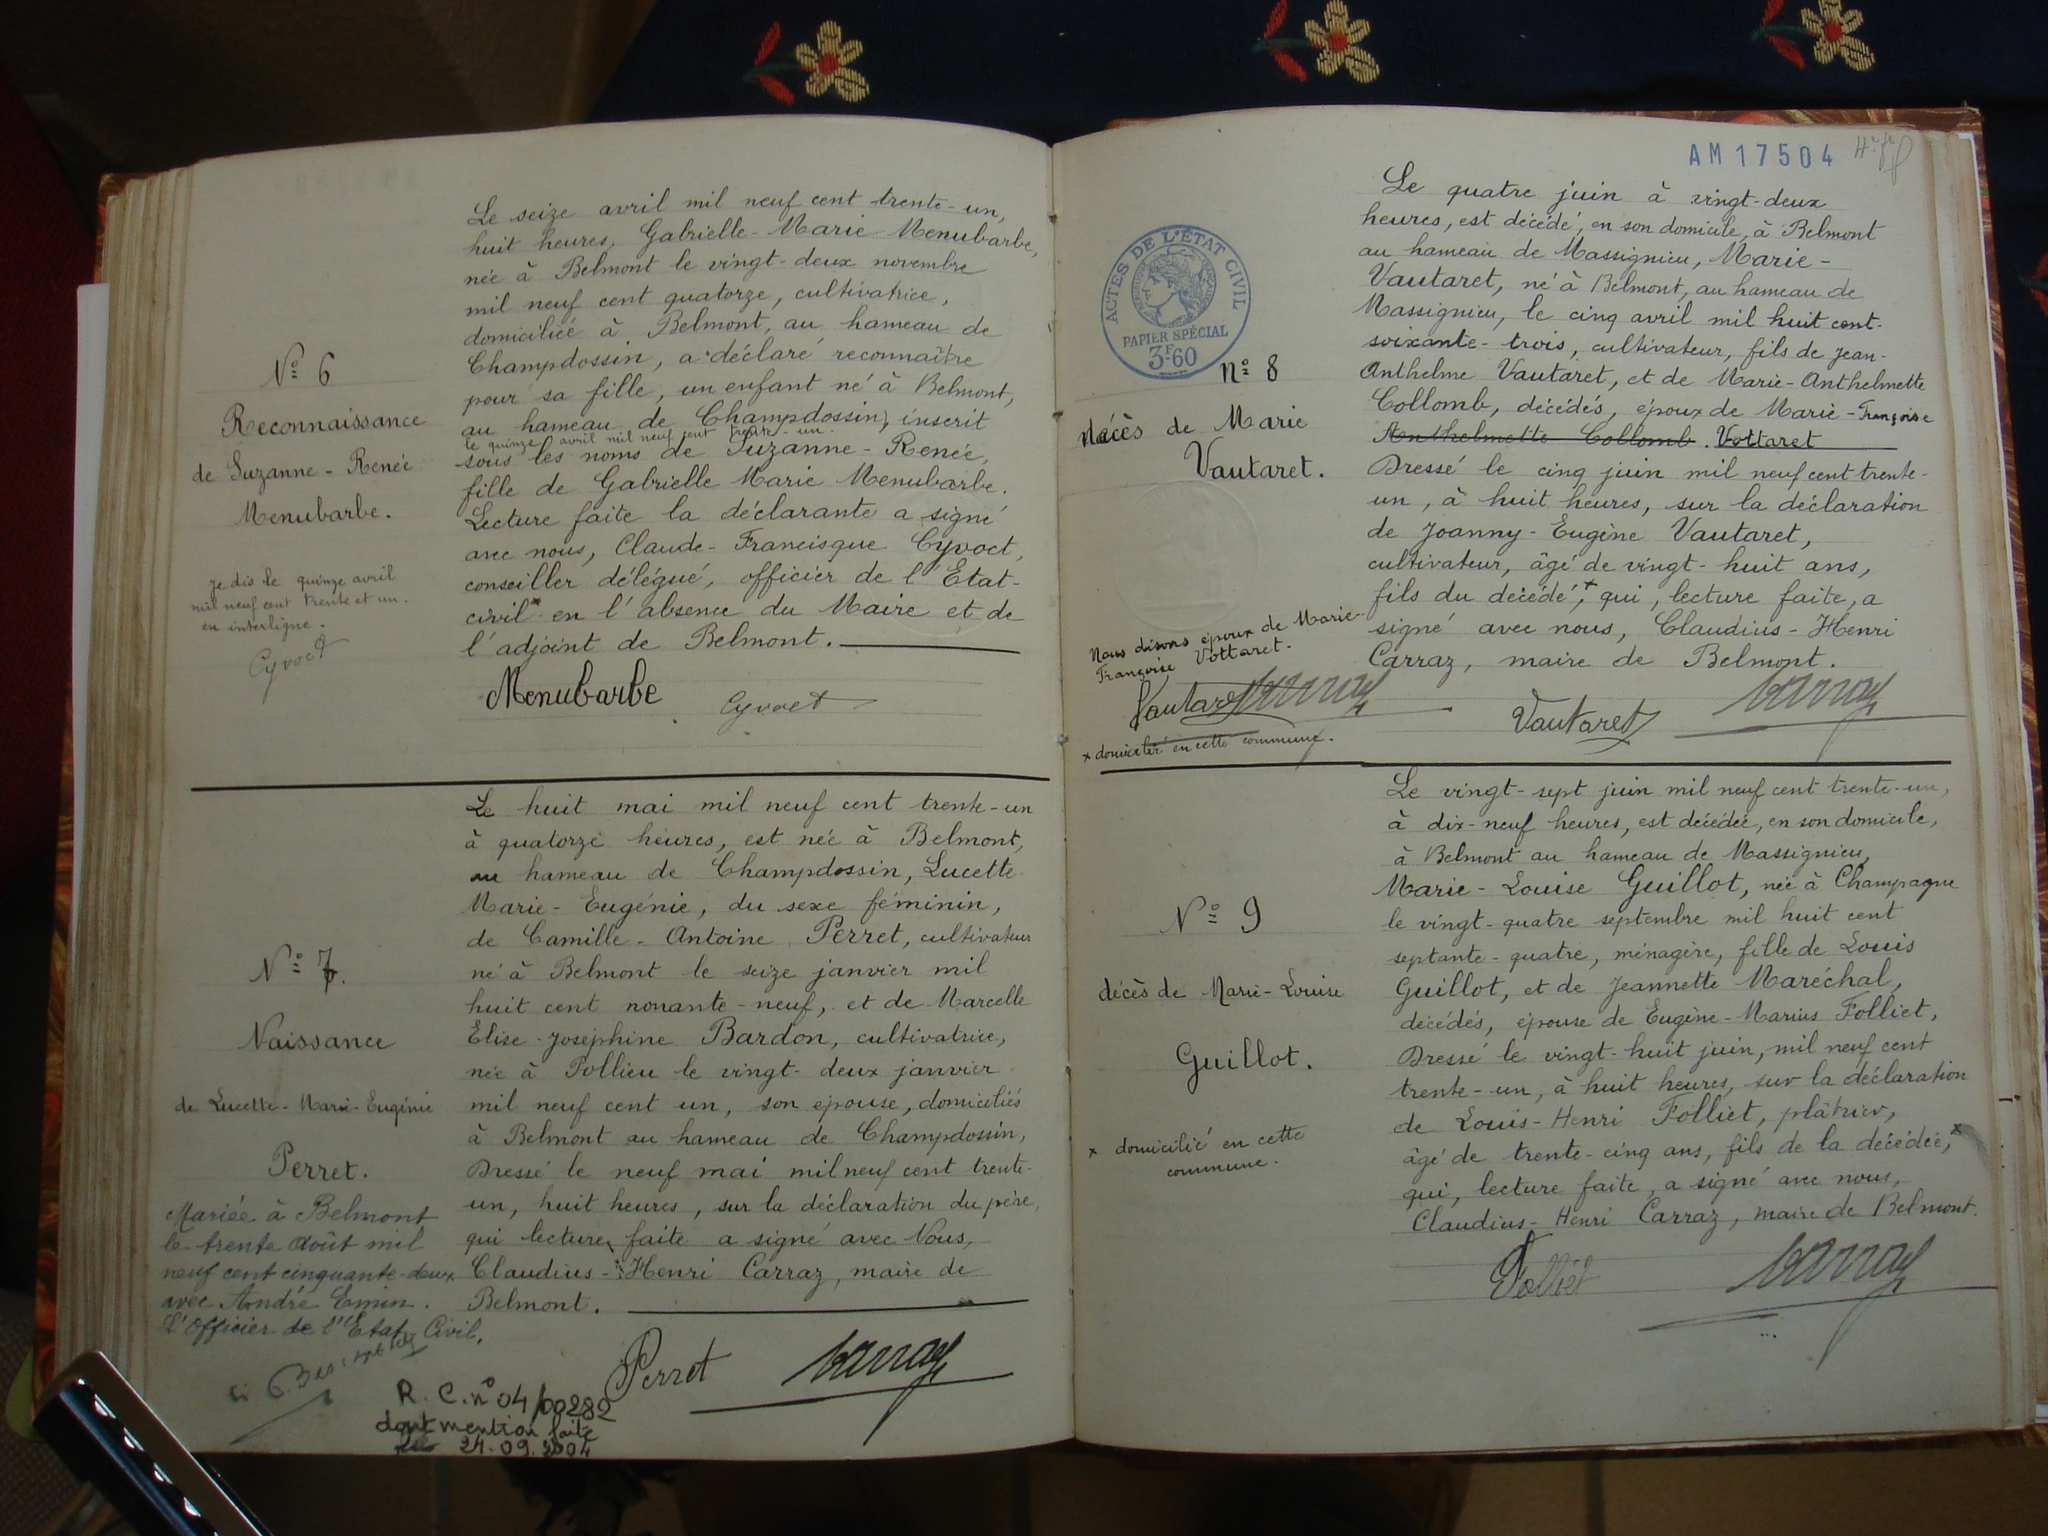 Le seize avril mil neuf cent trente-un,
huit heures, Gabrielle-Marie Menubarbe,
née à Belmont le vingt-deux novembre
mil neuf cent quatorze, cultivatrice,
domiciliée à Belmont, au hameau de
Champdossin, a déclaré reconnaître
pour sa fille, un enfant né à Belmont,
au hameau de Champdossin, inscrit
le quinze avril mil neuf cent trente-un
sous les noms de Suzanne-Renée,
fille de Gabrielle Marie Menubarbe.
Lecture faite la déclarante a signé
avec nous, Claude-Francisque Cyvoct,
conseiller délégué, officier de l'Etat-
civil en l'absence du Maire et de
l'adjoint de Belmont.
Menubarbe Cyvoct
Nº 6
Reconnaissance
de Suzanne-Renée
Menubarbe.
Je dis le quinze avril
mil neuf cent trente et un.
en interligne.
Cyvoct
Le huit mai mil neuf cent trente-un
à quatorze heures, est née à Belmont,
au hameau de Champdossin, Lucette
Marie-Eugénie, du sexe féminin,
de Camille-Antoine Perret, cultivateur
né à Belmont le seize janvier mil
huit cent nonante-neuf, et de Marcelle
Elise-Joséphine Bardon, cultivatrice,
née à Pollieu le vingt-deux janvier
mil neuf cent un, son épouse, domiciliés
à Belmont au hameau de Champdossin,
Dressé le neuf mai mil neuf cent trente-
un, huit heures, sur la déclaration du père,
qui lecture faite a signé avec Nous,
Claudius-Henri Carraz, maire de
Belmont.
Perret Carraz
Nº 7.
Naissance
de Lucette-Marie-Eugénie
Perret.
Mariée à Belmont
le trente août mil
neuf cent cinquante-deux
avec André Emin.
L'Officier de l'Etat Civil,
R.C. nº 04/00282
dont mention faite
24.09.2004
AM 17504
ACTES DE L'ÉTAT CIVIL
PAPIER SPÉCIAL
3F60
Le quatre juin à vingt-deux
heures, est décédé, en son domicile, à Belmont
au hameau de Massignieu, Marie-
Vautaret, né à Belmont, au hameau de
Massignieu, le cinq avril mil huit cent-
soixante-trois, cultivateur, fils de Jean-
Anthelme Vautaret, et de Marie-Anthelmette
Collomb, décédés, époux de Marie-Françoise
Anthelmette Collomb. Vottaret
Dressé le cinq juin mil neuf cent trente-
un, à huit heures, sur la déclaration
de Joanny-Eugène Vautaret,
cultivateur, âgé de vingt-huit ans,
fils du décédé,x qui, lecture faite, a
signé avec nous, Claudius-Henri
Carraz, maire de Belmont.
Vautaret Carraz
Nº 8
décès de Marie
Vautaret.
Nous disons époux de Marie-
Françoise Vottaret.
Vautaret Carraz
x domicilié en cette commune.
Le vingt-sept juin mil neuf cent trente-un,
à dix-neuf heures, est décédée, en son domicile,
à Belmont au hameau de Massignieu,
Marie-Louise Guillot, née à Champagne
le vingt-quatre septembre mil huit cent
septante-quatre, ménagère, fille de Louis
Guillot, et de Jeannette Maréchal,
décédés, épouse de Eugène-Marius Folliet,
Dressé le vingt-huit juin, mil neuf cent
trente-un, à huit heures, sur la déclaration
de Louis-Henri Folliet, plâtrier,
âgé de trente-cinq ans, fils de la décédée,x
qui, lecture faite, a signé avec nous,
Claudius-Henri Carraz, maire de Belmont.
Folliet Carraz
Nº 9
décès de Marie-Louise
Guillot.
x domicilié en cette
commune.